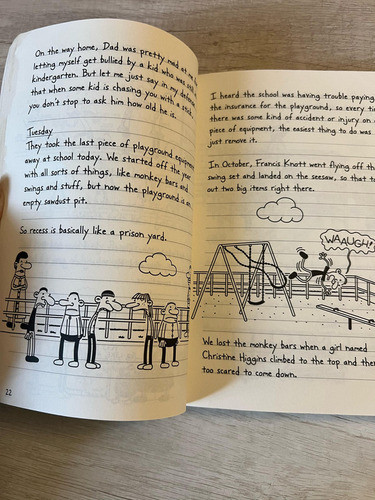 On the way home, Dad was pretty mad at me
letting myself get bullied by a kid who was still
kindergarten. But let me just say in my defense
that when some kid is chasing you with a stick,
you don't stop to ask him how old he is.
Tuesday
They took the last piece of playground equipment
away at school today. We started off the year
with all sorts of things, like monkey bars and
swings and stuff, but now the playground is
empty sawdust pit.
So recess is basically like a prison yard.
22
I heard the school was having trouble paying
the insurance for the playground, so every
there was some kind of accident or injury on
piece of equipment, the easiest thing to do was
just remove it.
In October, Francis Knott went flying off the
swing set and landed on the seesaw, so that
out two big items right there.
WAAUGH!
We lost the monkey bars when a girl named
Christine Higgins climbed to the top and
too scared to come down.